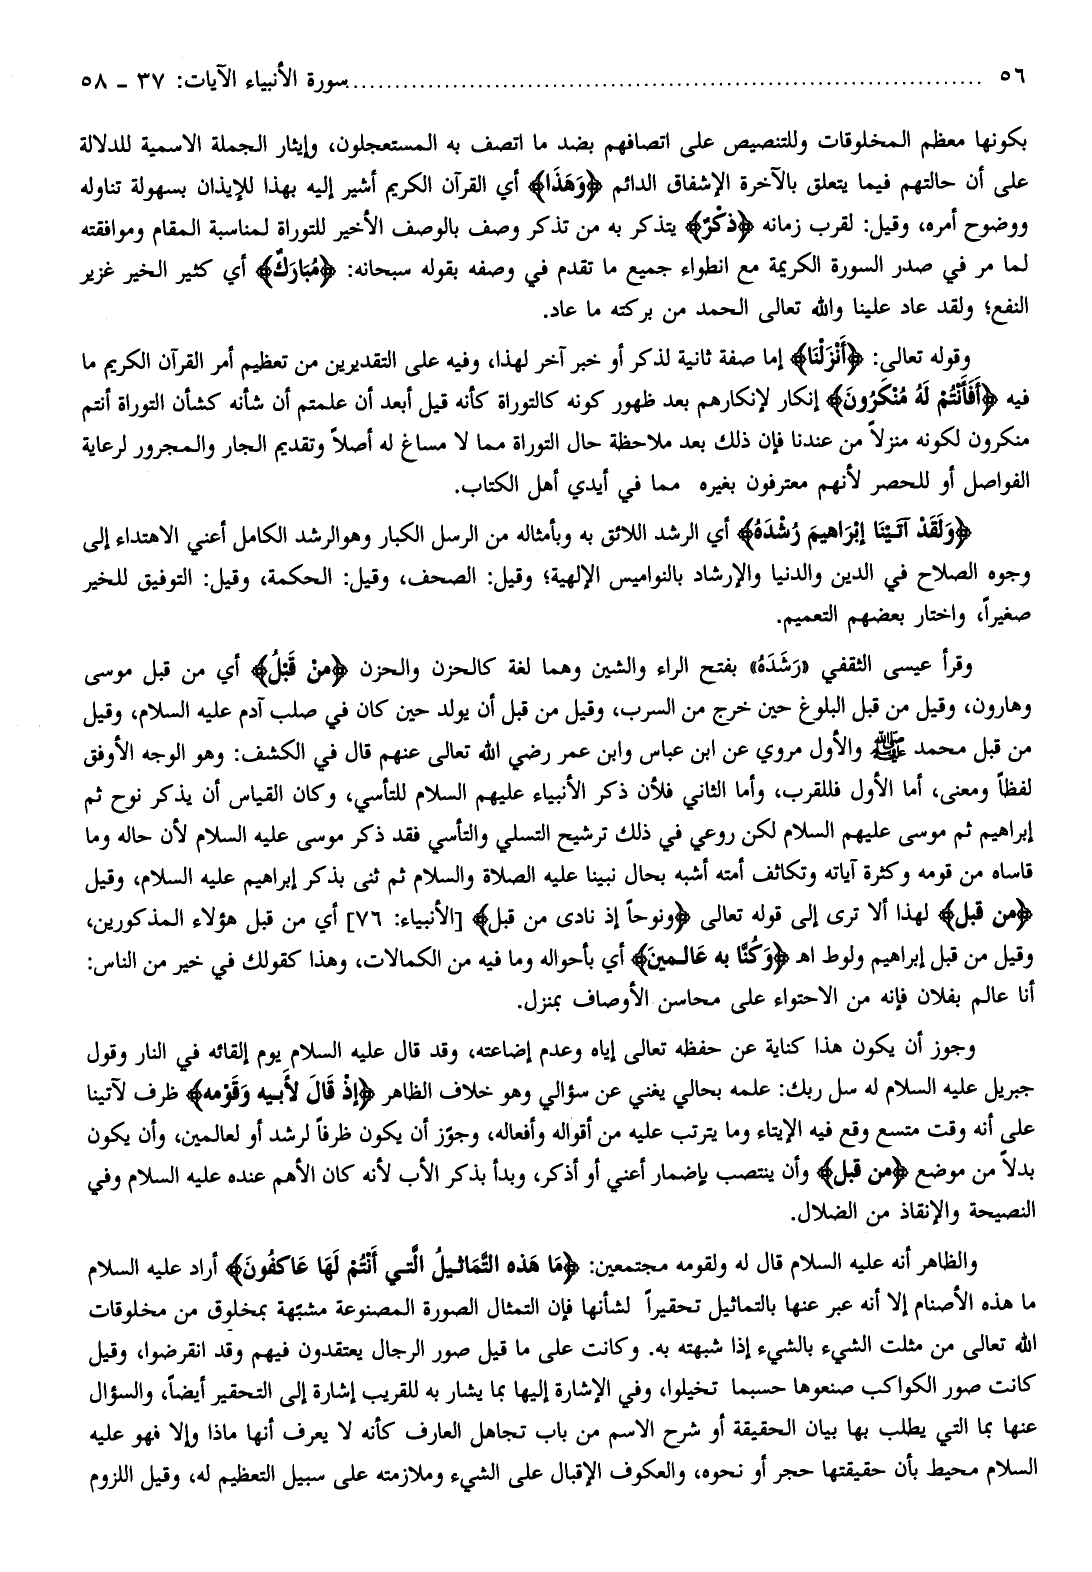 ٥٦ ........................................ سورة الأنبياء الآيات: ٣٧ ـ ٥٨
بكونها معظم المخلوقات وللتنصيص على اتصافهم بضد ما اتصف به المستعجلون، وإيثار الجملة الاسمية للدلالة
على أن حالتهم فيما يتعلق بالآخرة الإشفاق الدائم ﴿وَهَذَا﴾ أي القرآن الكريم أشير إليه بهذا للإيذان بسهولة تناوله
ووضوح أمره، وقيل: لقرب زمانه ﴿ذكْرٌ﴾ يتذكر به من تذكر وصف بالوصف الأخير للتوراة لمناسبة المقام وموافقته
لما مر في صدر السورة الكريمة مع انطواء جميع ما تقدم في وصفه بقوله سبحانه: ﴿مُبَارَكٌ﴾ أي كثير الخير غزير
النفع؛ ولقد عاد علينا والله تعالى الحمد من بركته ما عاد.
وقوله تعالى: ﴿أَنْزَلْنَا﴾ إما صفة ثانية لذكر أو خبر آخر لهذا، وفيه على التقديرين من تعظيم أمر القرآن الكريم ما
فيه ﴿أَفَأَنْتُمْ لَهُ مُنْكَرُونَ﴾ إنكار لإنكارهم بعد ظهور كونه كالتوراة كأنه قيل أبعد أن علمتم أن شأنه كشأن التوراة أنتم
منكرون لكونه منزلاً من عندنا فإن ذلك بعد ملاحظة حال التوراة مما لا مساغ له أصلاً وتقديم الجار والمجرور لرعاية
الفواصل أو للحصر لأنهم معترفون بغيره مما في أيدي أهل الكتاب.
﴿وَلَقَدْ آتَيْنَا إبْرَاهيمَ رُشْدَهُ﴾ أي الرشد اللائق به وبأمثاله من الرسل الكبار وهوالرشد الكامل أعني الاهتداء إلى
وجوه الصلاح في الدين والدنيا والإرشاد بالنواميس الإلهية؛ وقيل: الصحف، وقيل: الحكمة، وقيل: التوفيق للخير
صغيراً، واختار بعضهم التعميم.
وقرأ عيسى الثقفي «رَشَدَهُ» بفتح الراء والشين وهما لغة كالحزن والحزن ﴿منْ قَبْلُ﴾ أي من قبل موسى
وهارون، وقيل من قبل البلوغ حين خرج من السرب، وقيل من قبل أن يولد حين كان في صلب آدم عليه السلام، وقيل
من قبل محمد ﷺ والأول مروي عن ابن عباس وابن عمر رضي الله تعالى عنهم قال في الكشف: وهو الوجه الأوفق
لفظاً ومعنى، أما الأول فللقرب، وأما الثاني فلأن ذكر الأنبياء عليهم السلام للتأسي، وكان القياس أن يذكر نوح ثم
إبراهيم ثم موسى عليهم السلام لكن روعي في ذلك ترشيح التسلي والتأسي فقد ذكر موسى عليه السلام لأن حاله وما
قاساه من قومه وكثرة آياته وتكاثف أمته أشبه بحال نبينا عليه الصلاة والسلام ثم ثنى بذكر إبراهيم عليه السلام، وقيل
﴿من قبل﴾ لهذا ألا ترى إلى قوله تعالى ﴿ونوحاً إذ نادى من قبل﴾ [الأنبياء: ٧٦] أي من قبل هؤلاء المذكورين،
وقيل من قبل إبراهيم ولوط اهـ ﴿وَكُنَّا به عَالمينَ﴾ أي بأحواله وما فيه من الكمالات، وهذا كقولك في خير من الناس:
أنا عالم بفلان فإنه من الاحتواء على محاسن الأوصاف بمنزل.
وجوز أن يكون هذا كناية عن حفظه تعالى إياه وعدم إضاعته، وقد قال عليه السلام يوم إلقائه في النار وقول
جبريل عليه السلام له سل ربك: علمه بحالي يغني عن سؤالي وهو خلاف الظاهر ﴿إذْ قَالَ لأَبيه وَقَوْمه﴾ ظرف لآتينا
على أنه وقت متسع وقع فيه الإيتاء وما يترتب عليه من أقواله وأفعاله، وجوّز أن يكون ظرفاً لرشد أو لعالمين، وأن يكون
بدلاً من موضع ﴿من قبل﴾ وأن ينتصب بإضمار أعني أو أذكر، وبدأ بذكر الأب لأنه كان الأهم عنده عليه السلام وفي
النصيحة والإنقاذ من الضلال.
والظاهر أنه عليه السلام قال له ولقومه مجتمعين: ﴿مَا هَذه التَّمَاثيلُ الَّتي أَنْتُمْ لَهَا عَاكفُونَ﴾ أراد عليه السلام
ما هذه الأصنام إلا أنه عبر عنها بالتماثيل تحقيراً لشأنها فإن التمثال الصورة المصنوعة مشبّهة بمخلوق من مخلوقات
الله تعالى من مثلت الشيء بالشيء إذا شبهته به. وكانت على ما قيل صور الرجال يعتقدون فيهم وقد انقرضوا، وقيل
كانت صور الكواكب صنعوها حسبما تخيلوا، وفي الإشارة إليها بما يشار به للقريب إشارة إلى التحقير أيضاً، والسؤال
عنها بما التي يطلب بها بيان الحقيقة أو شرح الاسم من باب تجاهل العارف كأنه لا يعرف أنها ماذا وإلا فهو عليه
السلام محيط بأن حقيقتها حجر أو نحوه، والعكوف الإقبال على الشيء وملازمته على سبيل التعظيم له، وقيل اللزوم